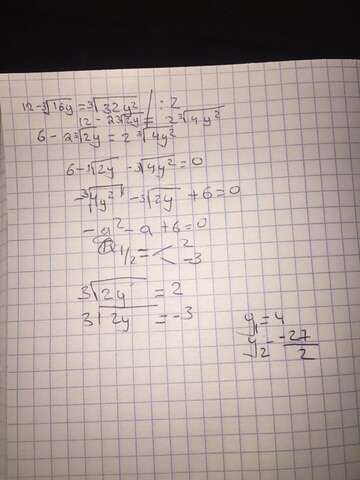 12-∛16y = ∛32y² / :2
12 - 2∛2y = 2∛4y²
6 - 2∛2y = 2∛4y²
6-∛2y - ∛4y² = 0
-∛4y² - ∛2y + 6 = 0
-a² - a + 6 = 0
a 1/2 = < 2 -3
3√2y = 2
3√2y = -3
y₁ = 4
y₂ = -27/2